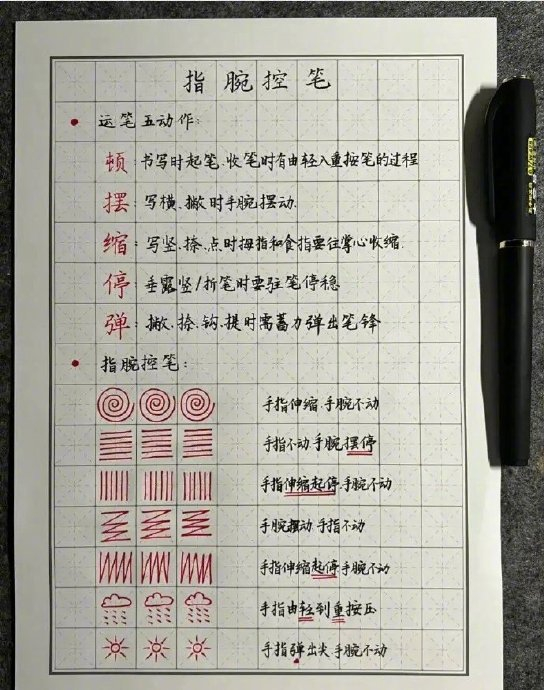 指腕控笔
运笔五动作:
顿:书写时起笔、收笔时有由轻入重按笔的过程
摆:写横、撇时手腕摆动.
缩:写竖、捺、点时拇指和食指要往掌心收缩.
停:垂露竖/折笔时要驻笔停稳
弹:撇、捺、钩、提时需蓄力弹出笔锋
指腕控笔:
手指伸缩.手腕不动
手指不动.手腕摆停
手指伸缩起停.手腕不动
手腕摆动.手指不动
手指伸缩起停.手腕不动
手指由轻到重按压
手指弹出尖.手腕不动